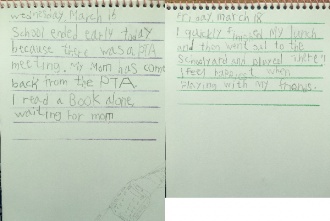 wednesday, March 16
School ended early today
because there was a PTA
meeting. My Mom has come
back from the PTA
I read a Book alone
waiting for mom
Friday, March 18
I quickly finished my lunch
and then went out to the
Schoolyard and played there
I feel happiest when
Playing with my friends.